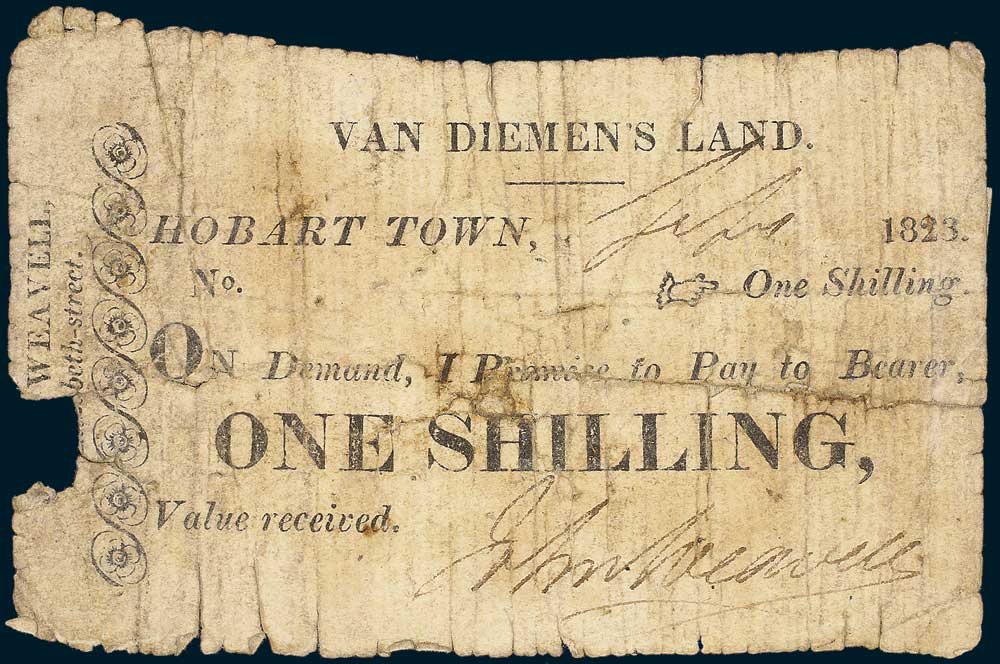 VAN DIEMEN'S LAND.
HOBART TOWN, 1823.
No. One Shilling.
ON Demand, I Promise to Pay to Bearer,
ONE SHILLING,
Value received.
John Weavell
WEAVELL,
beth-street.